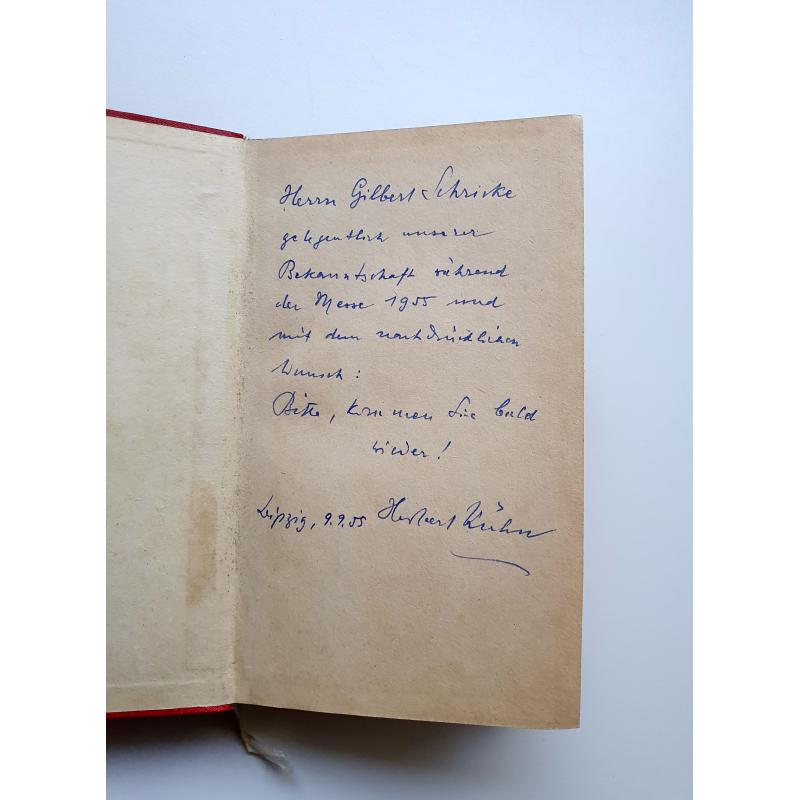 Herrn Gilbert Schricke
gelegentlich unserer
Bekanntschaft während
der Messe 1955 und
mit dem nachdrücklichen
Wunsch:
Bitte, kommen Sie bald
wieder!
Leipzig, 9.9.55 Herbert Kühn